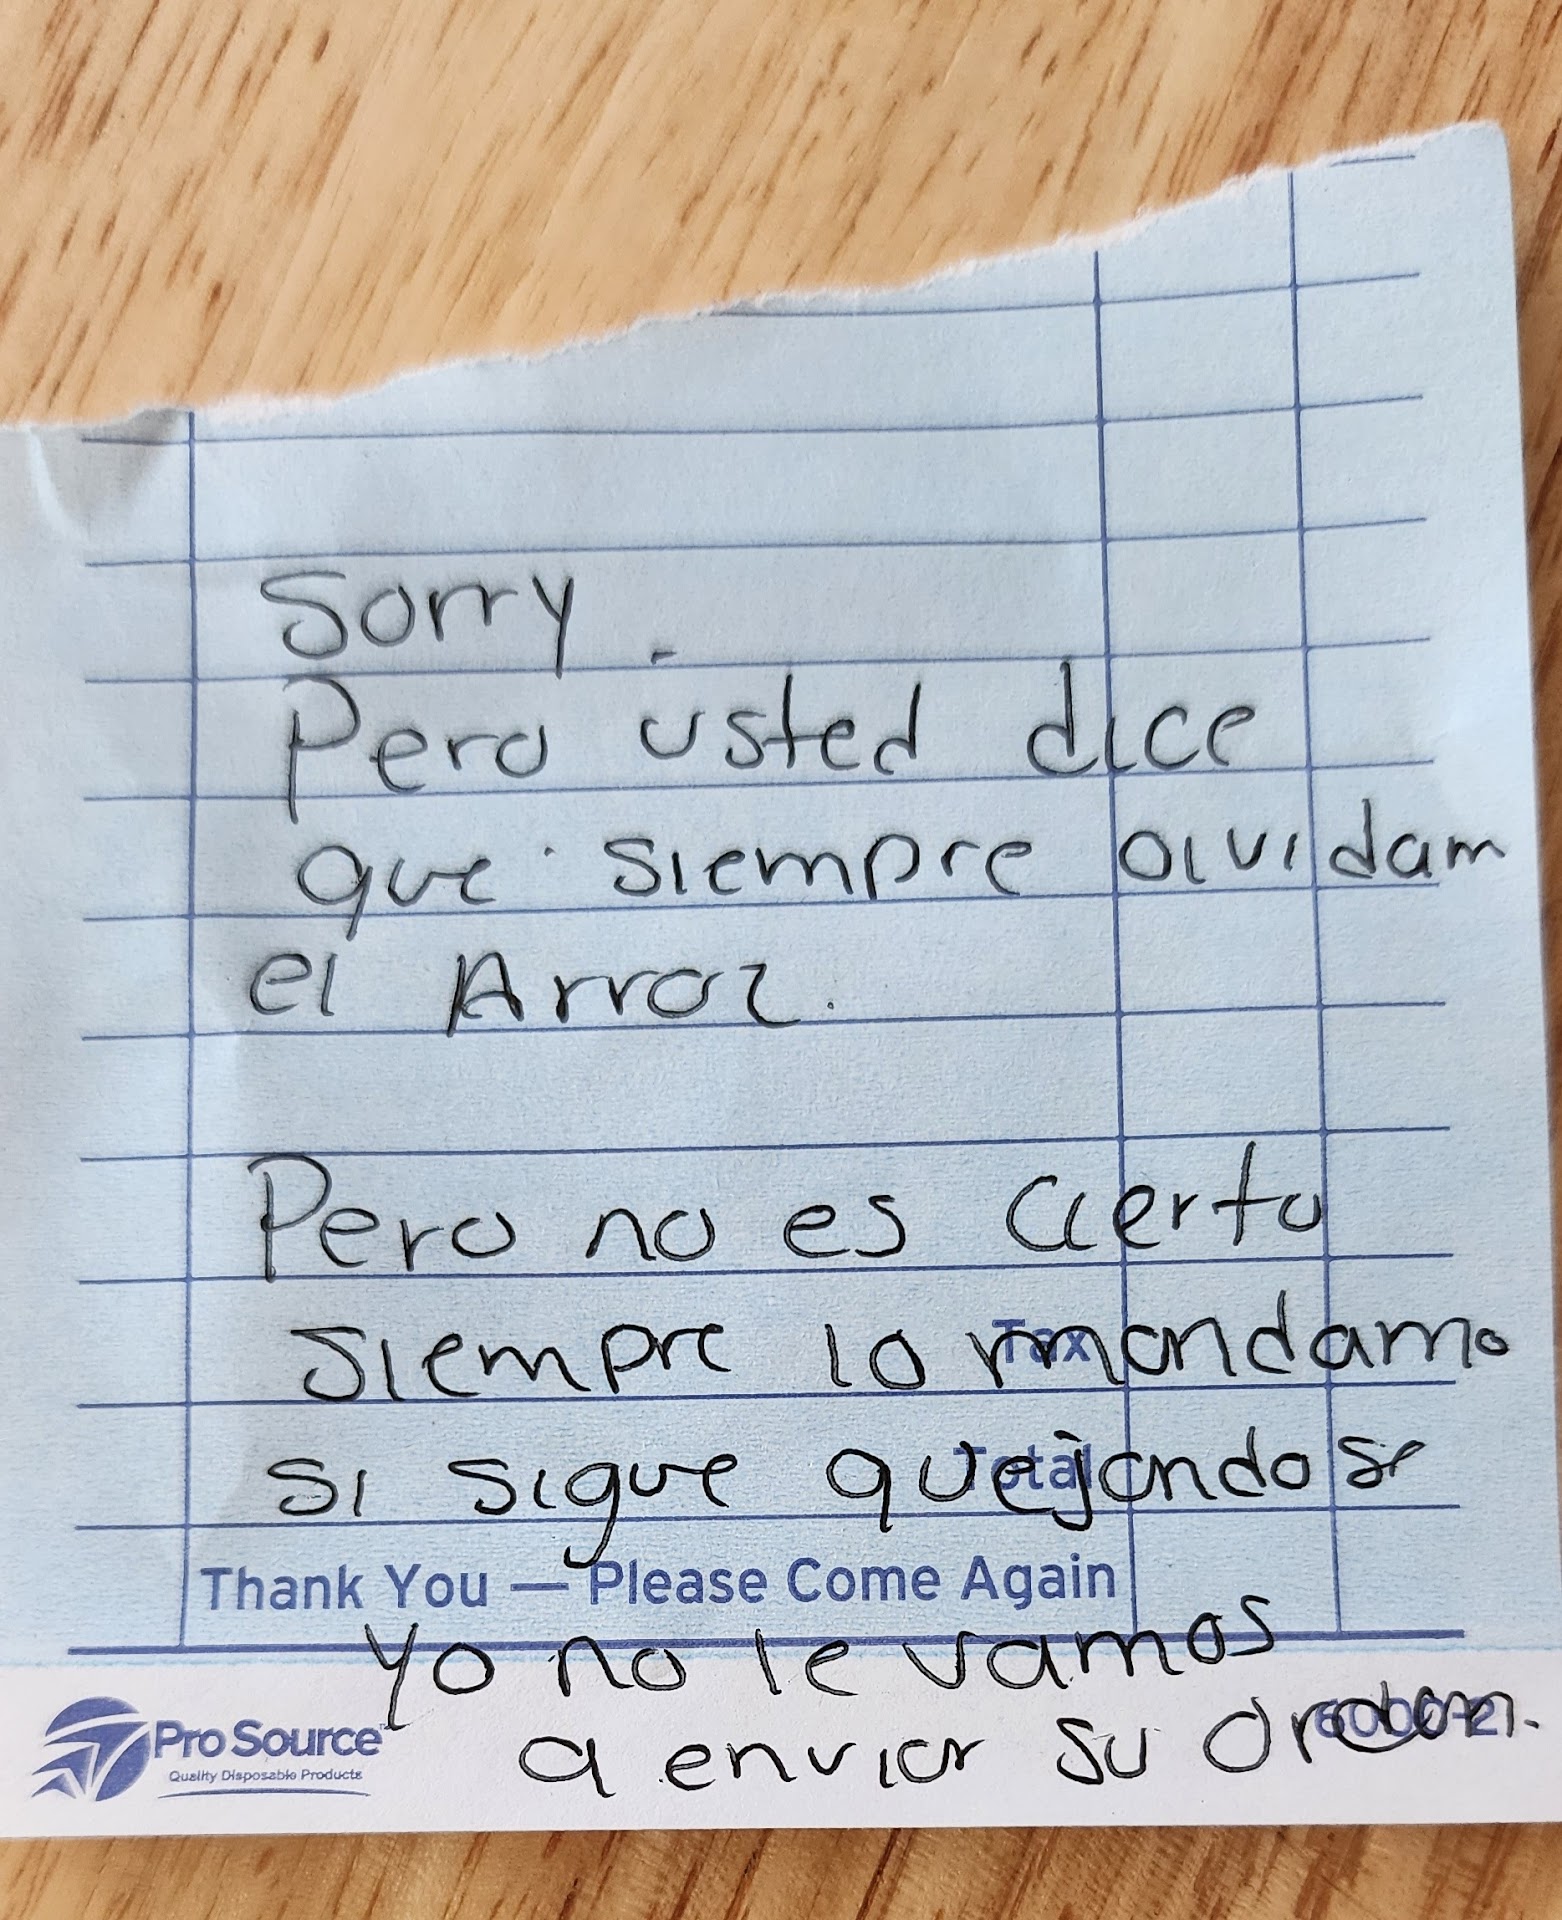 Sorry.
Pero usted dice
que siempre olvidam
el Arroz.
Pero no es cierto
siempre lo mandamo
Tax
si sigue quejandose
Total
Thank You — Please Come Again
yo no le vamos
a enviar su orden.
Pro Source™
Quality Disposable Products